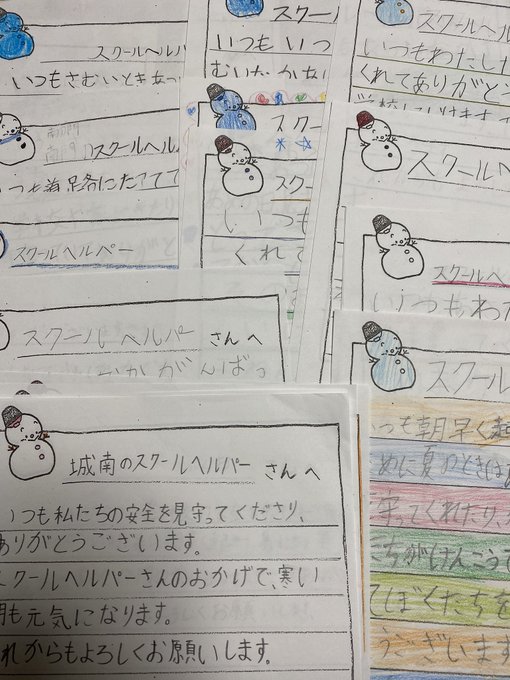 スクールヘル
いつもさむいときも
スクールヘル
いついつ
スクール
いつもわたした
くれてありがとう
スクールヘル
いつも通学路にたって
スクールヘルパー
スクー
スクー
いつも
くれて
スクールヘ
スクールヘ
いつもわた
スクールヘルパー さんへ
がんばっ
スクール
いつも朝早く起
めに夏のときは
守ってくれたり、
てぼくたちを
うございます
城南のスクールヘルパー さんへ
いつも私たちの安全を見守ってくださり、
ありがとうございます。
スクールヘルパーさんのおかげで、寒い
朝も元気になります。
れからもよろしくお願いします。